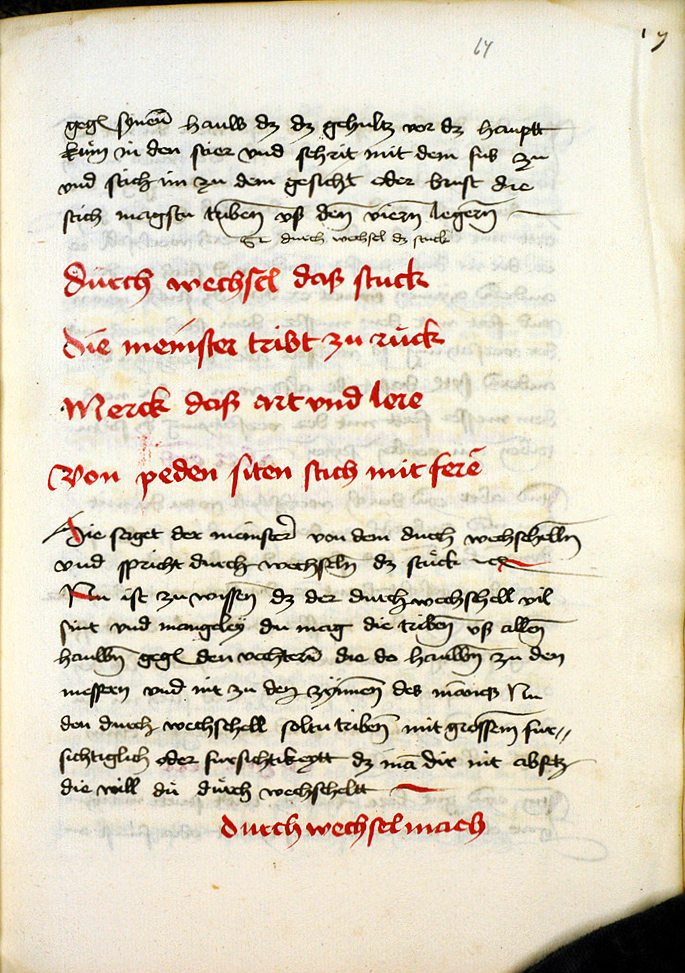 17
17
gegen synem̄ hauw dz dz gehultz vor dz haupt
kum̄ in den stier vnd schrit mit dem fus zu
vnd stich im zu dem gesicht oder brust die
stich magstu triben̄ vß den̄ viern̄ legern̄
durch wechsel dz stuck
durch wechsel daß stuck
die meinster tribt zu rück
Merck daß art vnd lere
von peden siten stich mit ferē
Hie seget der meinster von dem durch wechshelln̄
vnd spricht durch wechseln̄ dz stück
Nu ist zu wissen̄ dz der durch wechschell vil
sint vnd mangeley du mag die triben̄ vß allen̄
hauwn̄ gegen den vechtern̄ die do hauwn̄ zu den
messern vnd nit zu den des mannes Nu
den durch wechschell soltu triben̄ mit grossem̄ fur〃
sichtiglich oder fursichtikeytt dz mā dir nit absetz
die will du durch wechscheltt
durch wechsel mach